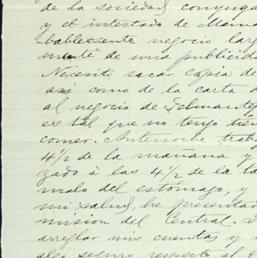 de la sociedad conyuga
y el intestado de Mama
bablemente negocio larg
de una publicida
Necesito sacar copia de
asi como de la carta d
al negocio de
es tal que no tengo tiem
comer. Antenoche trab
4 1/2 de la mañana y
zado á las 4 1/2 de la ta
malo del estomago, y
mi salud, he presentad
mision del Central.
arreglar mis cuentas y
algo seguro respecto al